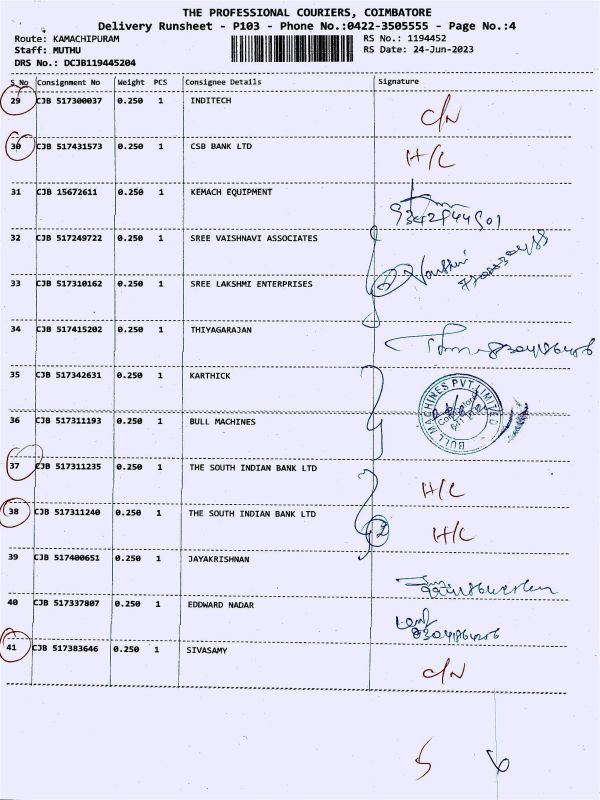 THE PROFESSIONAL COURIERS, COIMBATORE
Delivery Runsheet - P103 - Phone No.:0422-3505555 - Page No.:4
Route: KAMACHIPURAM RS No.: 1194452
Staff: MUTHU RS Date: 24-Jun-2023
DRS No.: DCJB119445204
S No Consignment No Weight PCS Consignee Details Signature
29 CJB 517300037 0.250 1 INDITECH C/N
30 CJB 517431573 0.250 1 CSB BANK LTD H/L
31 CJB 15672611 0.250 1 KEMACH EQUIPMENT
32 CJB 517249722 0.250 1 SREE VAISHNAVI ASSOCIATES
33 CJB 517310162 0.250 1 SREE LAKSHMI ENTERPRISES
34 CJB 517415202 0.250 1 THIYAGARAJAN
35 CJB 517342631 0.250 1 KARTHICK
36 CJB 517311193 0.250 1 BULL MACHINES BULL MACHINES PVT. LIMITED
37 CJB 517311235 0.250 1 THE SOUTH INDIAN BANK LTD H/L
38 CJB 517311240 0.250 1 THE SOUTH INDIAN BANK LTD H/L
39 CJB 517400651 0.250 1 JAYAKRISHNAN
40 CJB 517337807 0.250 1 EDDWARD NADAR
41 CJB 517383646 0.250 1 SIVASAMY C/N